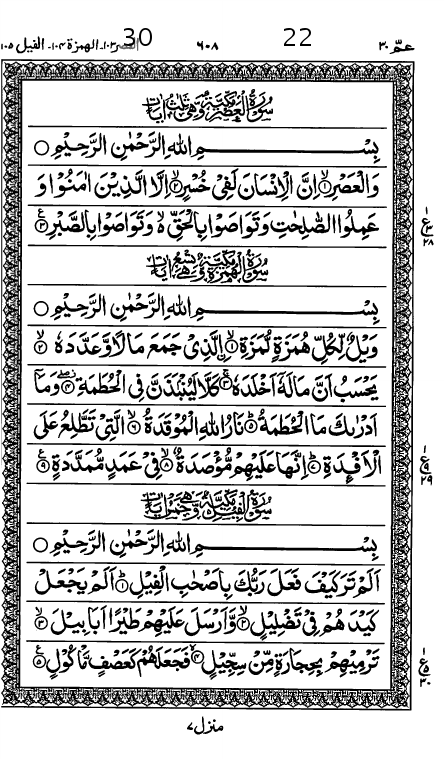 عمّ ٣٠ 22 ٦٠٨ 30 العصر ١٠٣۔ الهمزة ١٠٤۔ الفيل ١٠٥
سُوْرَةُ الْعَصْرِ مَكِّيَّةٌ وَّهِيَ ثَلٰثُ اٰيَاتٍ
بِسْمِ اللهِ الرَّحْمٰنِ الرَّحِيْمِ ○
وَالْعَصْرِ ۙ﴿١﴾ اِنَّ الْاِنْسَانَ لَفِيْ خُسْرٍ ۙ﴿٢﴾ اِلَّا الَّذِيْنَ اٰمَنُوْا وَ
عَمِلُوا الصّٰلِحٰتِ وَتَوَاصَوْا بِالْحَقِّ ۙ وَتَوَاصَوْا بِالصَّبْرِ ﴿٣﴾
ع ٢٨
سُوْرَةُ الْهُمَزَةِ مَكِّيَّةٌ وَّهِيَ تِسْعُ اٰيَاتٍ
بِسْمِ اللهِ الرَّحْمٰنِ الرَّحِيْمِ ○
وَيْلٌ لِّكُلِّ هُمَزَةٍ لُّمَزَةٍ ۙ﴿١﴾ اِۨلَّذِيْ جَمَعَ مَالًا وَّعَدَّدَهٗ ۙ﴿٢﴾
يَحْسَبُ اَنَّ مَالَهٗٓ اَخْلَدَهٗ ۚ﴿٣﴾ كَلَّا لَيُنْۢبَذَنَّ فِي الْحُطَمَةِ ۖ﴿٤﴾ وَمَآ
اَدْرٰىكَ مَا الْحُطَمَةُ ؕ﴿٥﴾ نَارُ اللهِ الْمُوْقَدَةُ ۙ﴿٦﴾ الَّتِيْ تَطَّلِعُ عَلَى
الْاَفْـِٕدَةِ ؕ﴿٧﴾ اِنَّهَا عَلَيْهِمْ مُّؤْصَدَةٌ ۙ﴿٨﴾ فِيْ عَمَدٍ مُّمَدَّدَةٍ ﴿٩﴾
ع ٢٩
سُوْرَةُ الْفِيْلِ مَكِّيَّةٌ وَّهِيَ خَمْسُ اٰيَاتٍ
بِسْمِ اللهِ الرَّحْمٰنِ الرَّحِيْمِ ○
اَلَمْ تَرَ كَيْفَ فَعَلَ رَبُّكَ بِاَصْحٰبِ الْفِيْلِ ؕ﴿١﴾ اَلَمْ يَجْعَلْ
كَيْدَهُمْ فِيْ تَضْلِيْلٍ ۙ﴿٢﴾ وَّاَرْسَلَ عَلَيْهِمْ طَيْرًا اَبَابِيْلَ ۙ﴿٣﴾
تَرْمِيْهِمْ بِحِجَارَةٍ مِّنْ سِجِّيْلٍ ۙ﴿٤﴾ فَجَعَلَهُمْ كَعَصْفٍ مَّاْكُوْلٍ ﴿٥﴾
ع ٣٠
منزل ٧